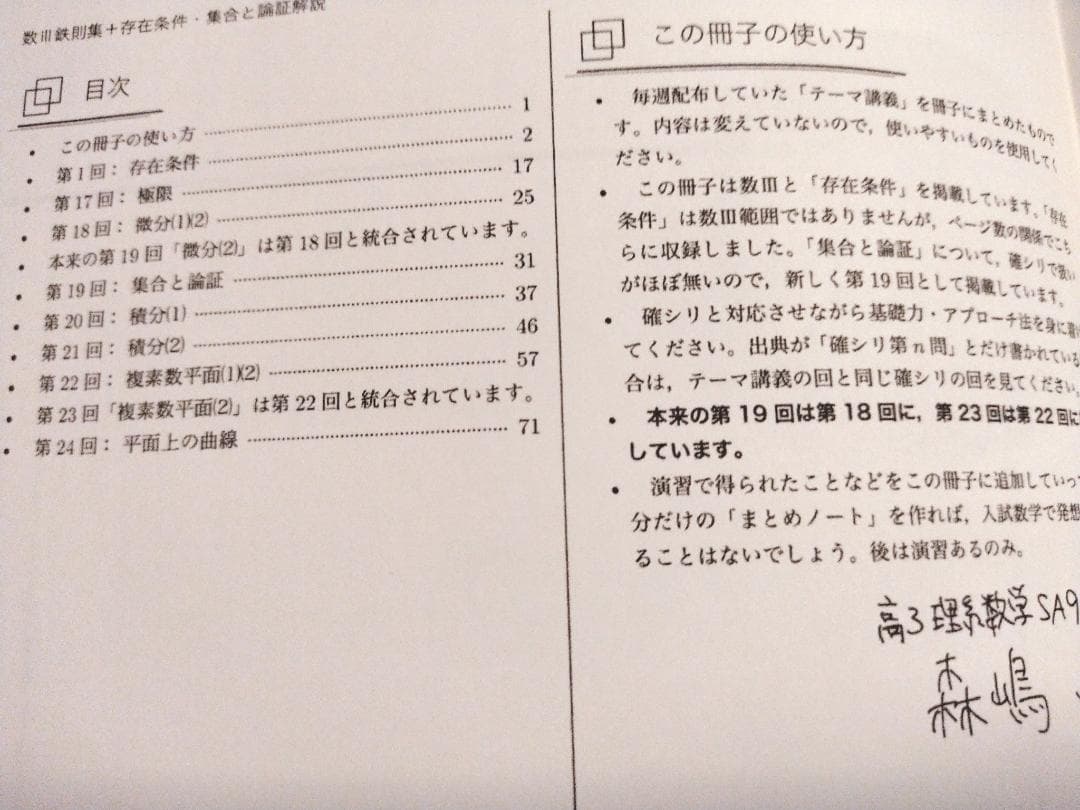 数Ⅲ鉄則集＋存在条件・集合と論証解説
目次
• この冊子の使い方 1
• 第1回：存在条件 2
• 第17回：極限 17
• 第18回：微分(1)(2) 25
• 本来の第19回「微分(2)」は第18回と統合されています。
• 第19回：集合と論証 31
• 第20回：積分(1) 37
• 第21回：積分(2) 46
• 第22回：複素数平面(1)(2) 57
• 第23回「複素数平面(2)」は第22回と統合されています。
• 第24回：平面上の曲線 71
この冊子の使い方
• 毎週配布していた「テーマ講義」を冊子にまとめたもので
す。内容は変えていないので，使いやすいものを使用してく
ださい。
• この冊子は数Ⅲと「存在条件」を掲載しています。「存在
条件」は数Ⅲ範囲ではありませんが，ページ数の関係でこち
らに収録しました。「集合と論証」について，確シリで扱い
がほぼ無いので，新しく第19回として掲載しています。
• 確シリと対応させながら基礎力・アプローチ法を身に着け
てください。出典が「確シリ第n問」とだけ書かれている
合は，テーマ講義の回と同じ確シリの回を見てください。
• 本来の第19回は第18回に，第23回は第22回に
しています。
• 演習で得られたことなどをこの冊子に追加していっ
分だけの「まとめノート」を作れば，入試数学で発想
ることはないでしょう。後は演習あるのみ。
高3理系数学SA9
森嶋